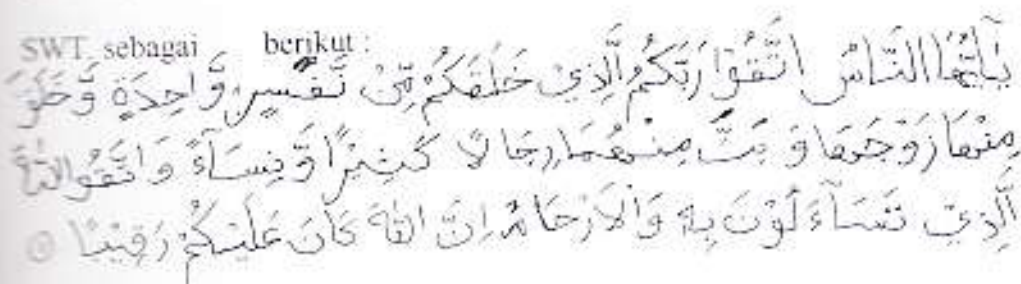 SWT, sebagai berikut :
يٰٓاَيُّهَا النَّاسُ اتَّقُوْا رَبَّكُمُ الَّذِيْ خَلَقَكُمْ مِّنْ نَّفْسٍ وَّاحِدَةٍ وَّخَلَقَ
مِنْهَا زَوْجَهَا وَبَثَّ مِنْهُمَا رِجَالًا كَثِيْرًا وَّنِسَآءً وَاتَّقُوا اللّٰهَ
الَّذِيْ تَسَآءَلُوْنَ بِهٖ وَالْاَرْحَامَ اِنَّ اللّٰهَ كَانَ عَلَيْكُمْ رَقِيْبًا